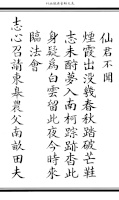 仙君不聞
煙霞出沒幾春秋踏破芒鞋
志未酧夢入南柯踪跡杳此
身疑爲白雲留此夜今時來
臨法會
志心召請東皋農父南畝田夫